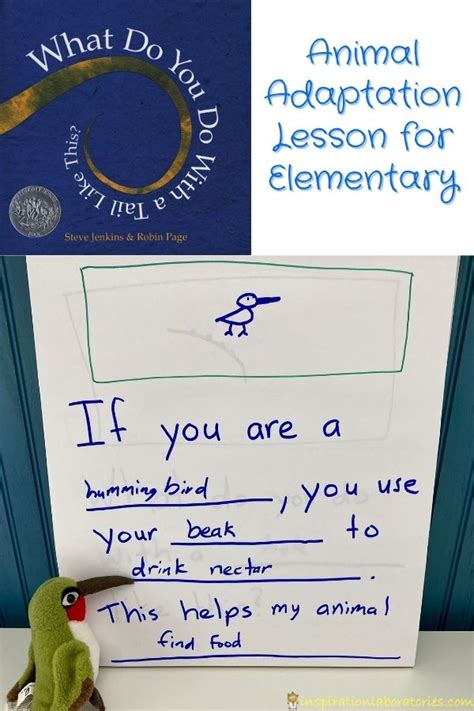 What Do You Do With a Tail Like This?
Steve Jenkins & Robin Page
Animal
Adaptation
Lesson for
Elementary
If you are a
humming bird, you use
your beak to
drink nectar.
This helps my animal
find food
inspirationlaboratories.com